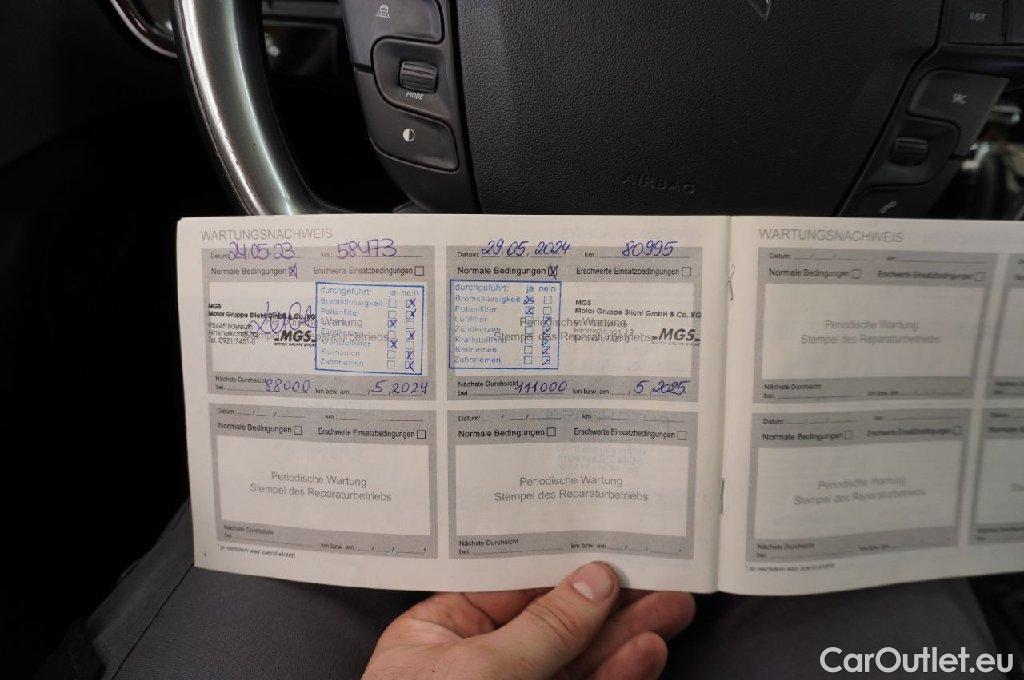 MORE
LIST
SRC
AIRBAG
WARTUNGSNACHWEIS
Datum: 24.05.23 km: 58473
Normale Bedingungen Erschwerte Einsatzbedingungen
MGS
Motor Gruppe Sticht GmbH & Co. KG
95445 Bayreuth
MGS
durchgeführt: ja nein
Bremsflüssigkeit
Pollenfilter
Zündkerzen
Kraftstofffilter
Keilriemen
Zahnriemen
Nächste Durchsicht
bei 88000 km bzw. am .5.2024
Datum: 29.05.2024 km: 80995
Normale Bedingungen Erschwerte Einsatzbedingungen
durchgeführt: ja nein
Bremsflüssigkeit
Pollenfilter
Luftfilter
Zündkerzen
Kraftstofffilter
Keilriemen
Zahnriemen
Periodische Wartung
MGS
Motor Gruppe Sticht GmbH & Co. KG
MGS
Nächste Durchsicht
bei 111000 km bzw. am .5.2025
Datum: km:
Normale Bedingungen Erschwerte Einsatzbedingungen
Periodische Wartung
Stempel des Reparaturbetriebs
Nächste Durchsicht
bei km bzw. am / / *
* Je nachdem was zuerst eintritt
Datum: km:
Normale Bedingungen Erschwerte Einsatzbedingungen
Periodische Wartung
Stempel des Reparaturbetriebs
Nächste Durchsicht
bei km bzw. am / / *
WARTUNGSNACHWEIS
Datum: km:
Normale Bedingungen Erschwerte Einsatzbedingungen
Periodische Wartung
Stempel des Reparaturbetriebs
Nächste Durchsicht
bei km bzw. am
Datum: km
Normale Bedingungen Erschwerte Einsatzbedingungen
Periodische Wartung
Stempel des Reparaturbetriebs
Nächste Durchsicht
bei km bzw. am
* Je nachdem was zuerst eintritt
CarOutlet.eu